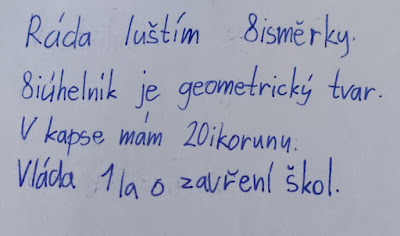 Ráda luštím 8isměrky.
8iúhelník je geometrický tvar.
V kapse mám 20ikorunu.
Vláda 1la o zavření škol.